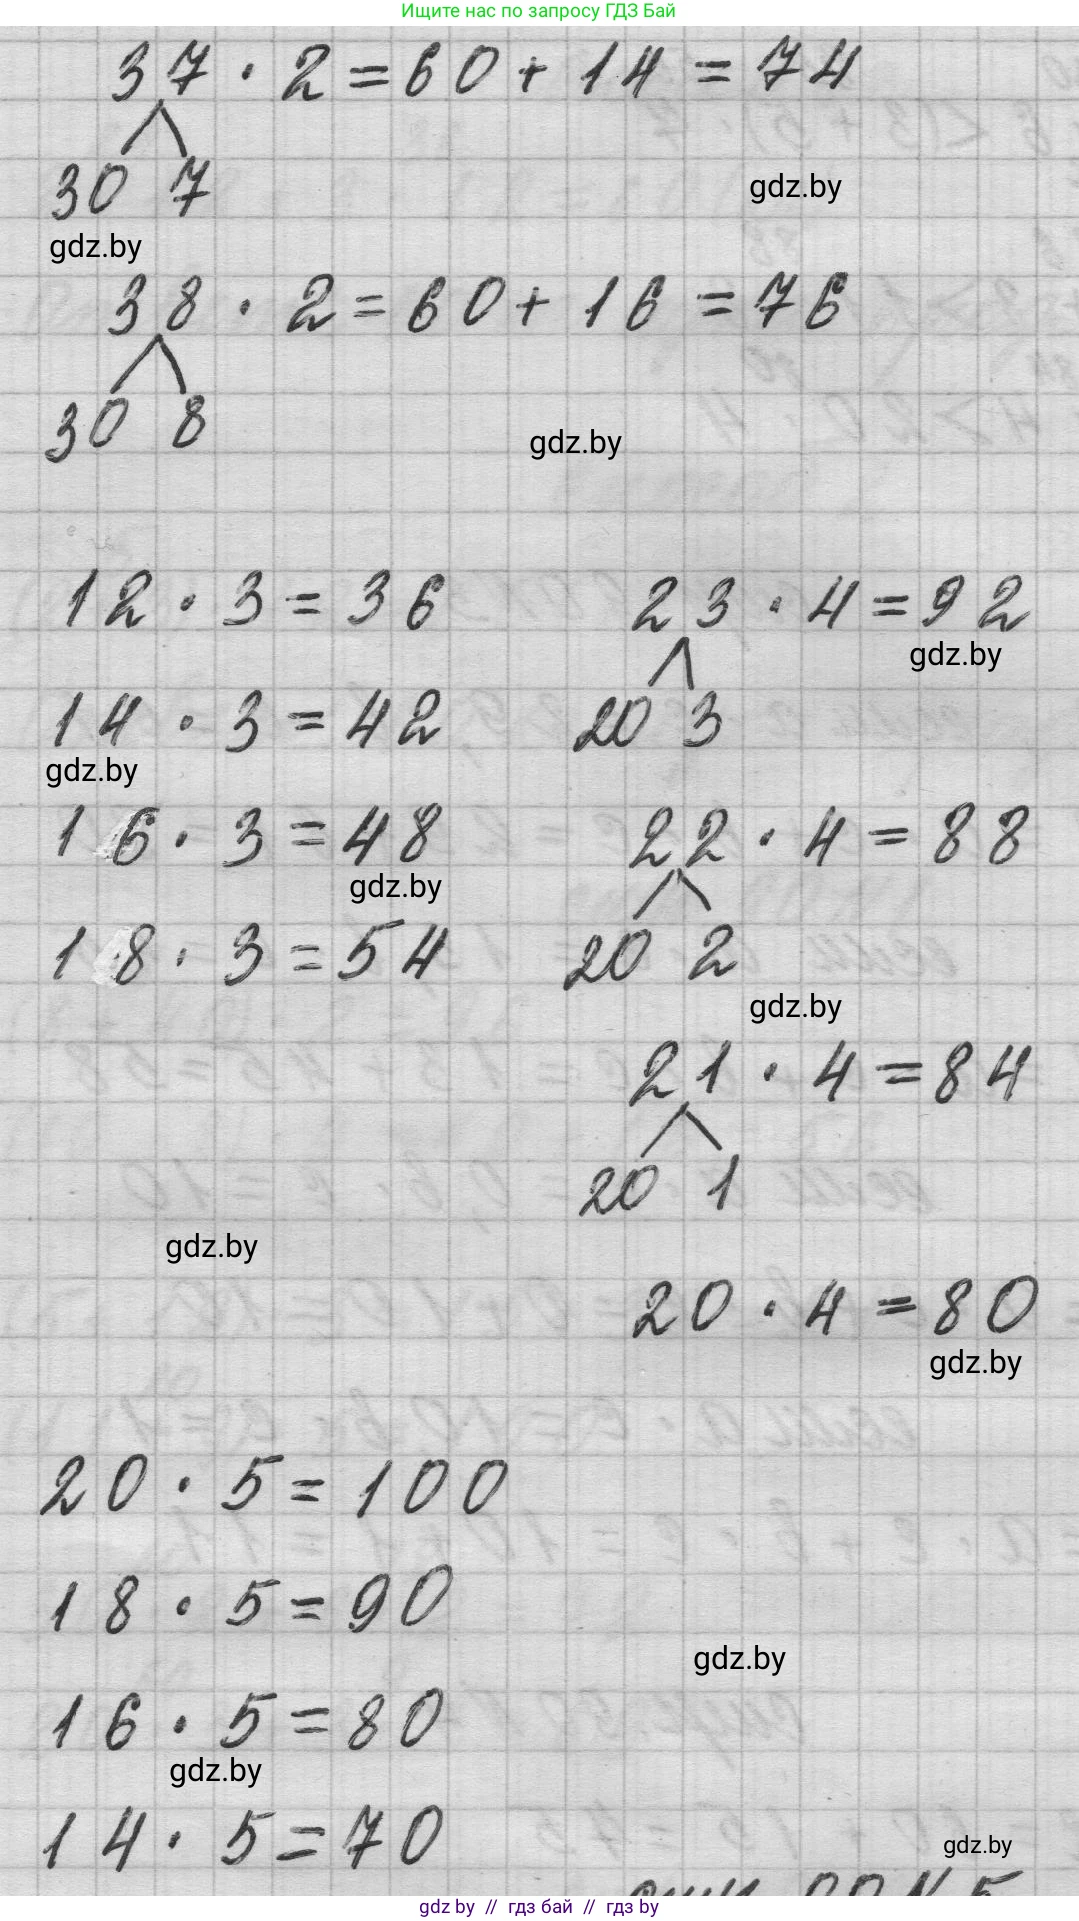 Ищите нас по запросу ГДЗ Бай
37 · 2 = 60 + 14 = 74
30 7
gdz.by
gdz.by
38 · 2 = 60 + 16 = 76
30 8
gdz.by
12 · 3 = 36
14 · 3 = 42
gdz.by
16 · 3 = 48
gdz.by
18 · 3 = 54
23 · 4 = 92
gdz.by
20 3
22 · 4 = 88
20 2
gdz.by
21 · 4 = 84
20 1
gdz.by
20 · 4 = 80
gdz.by
20 · 5 = 100
18 · 5 = 90
gdz.by
16 · 5 = 80
gdz.by
14 · 5 = 70
gdz.by
gdz by // гдз бай // гдз by